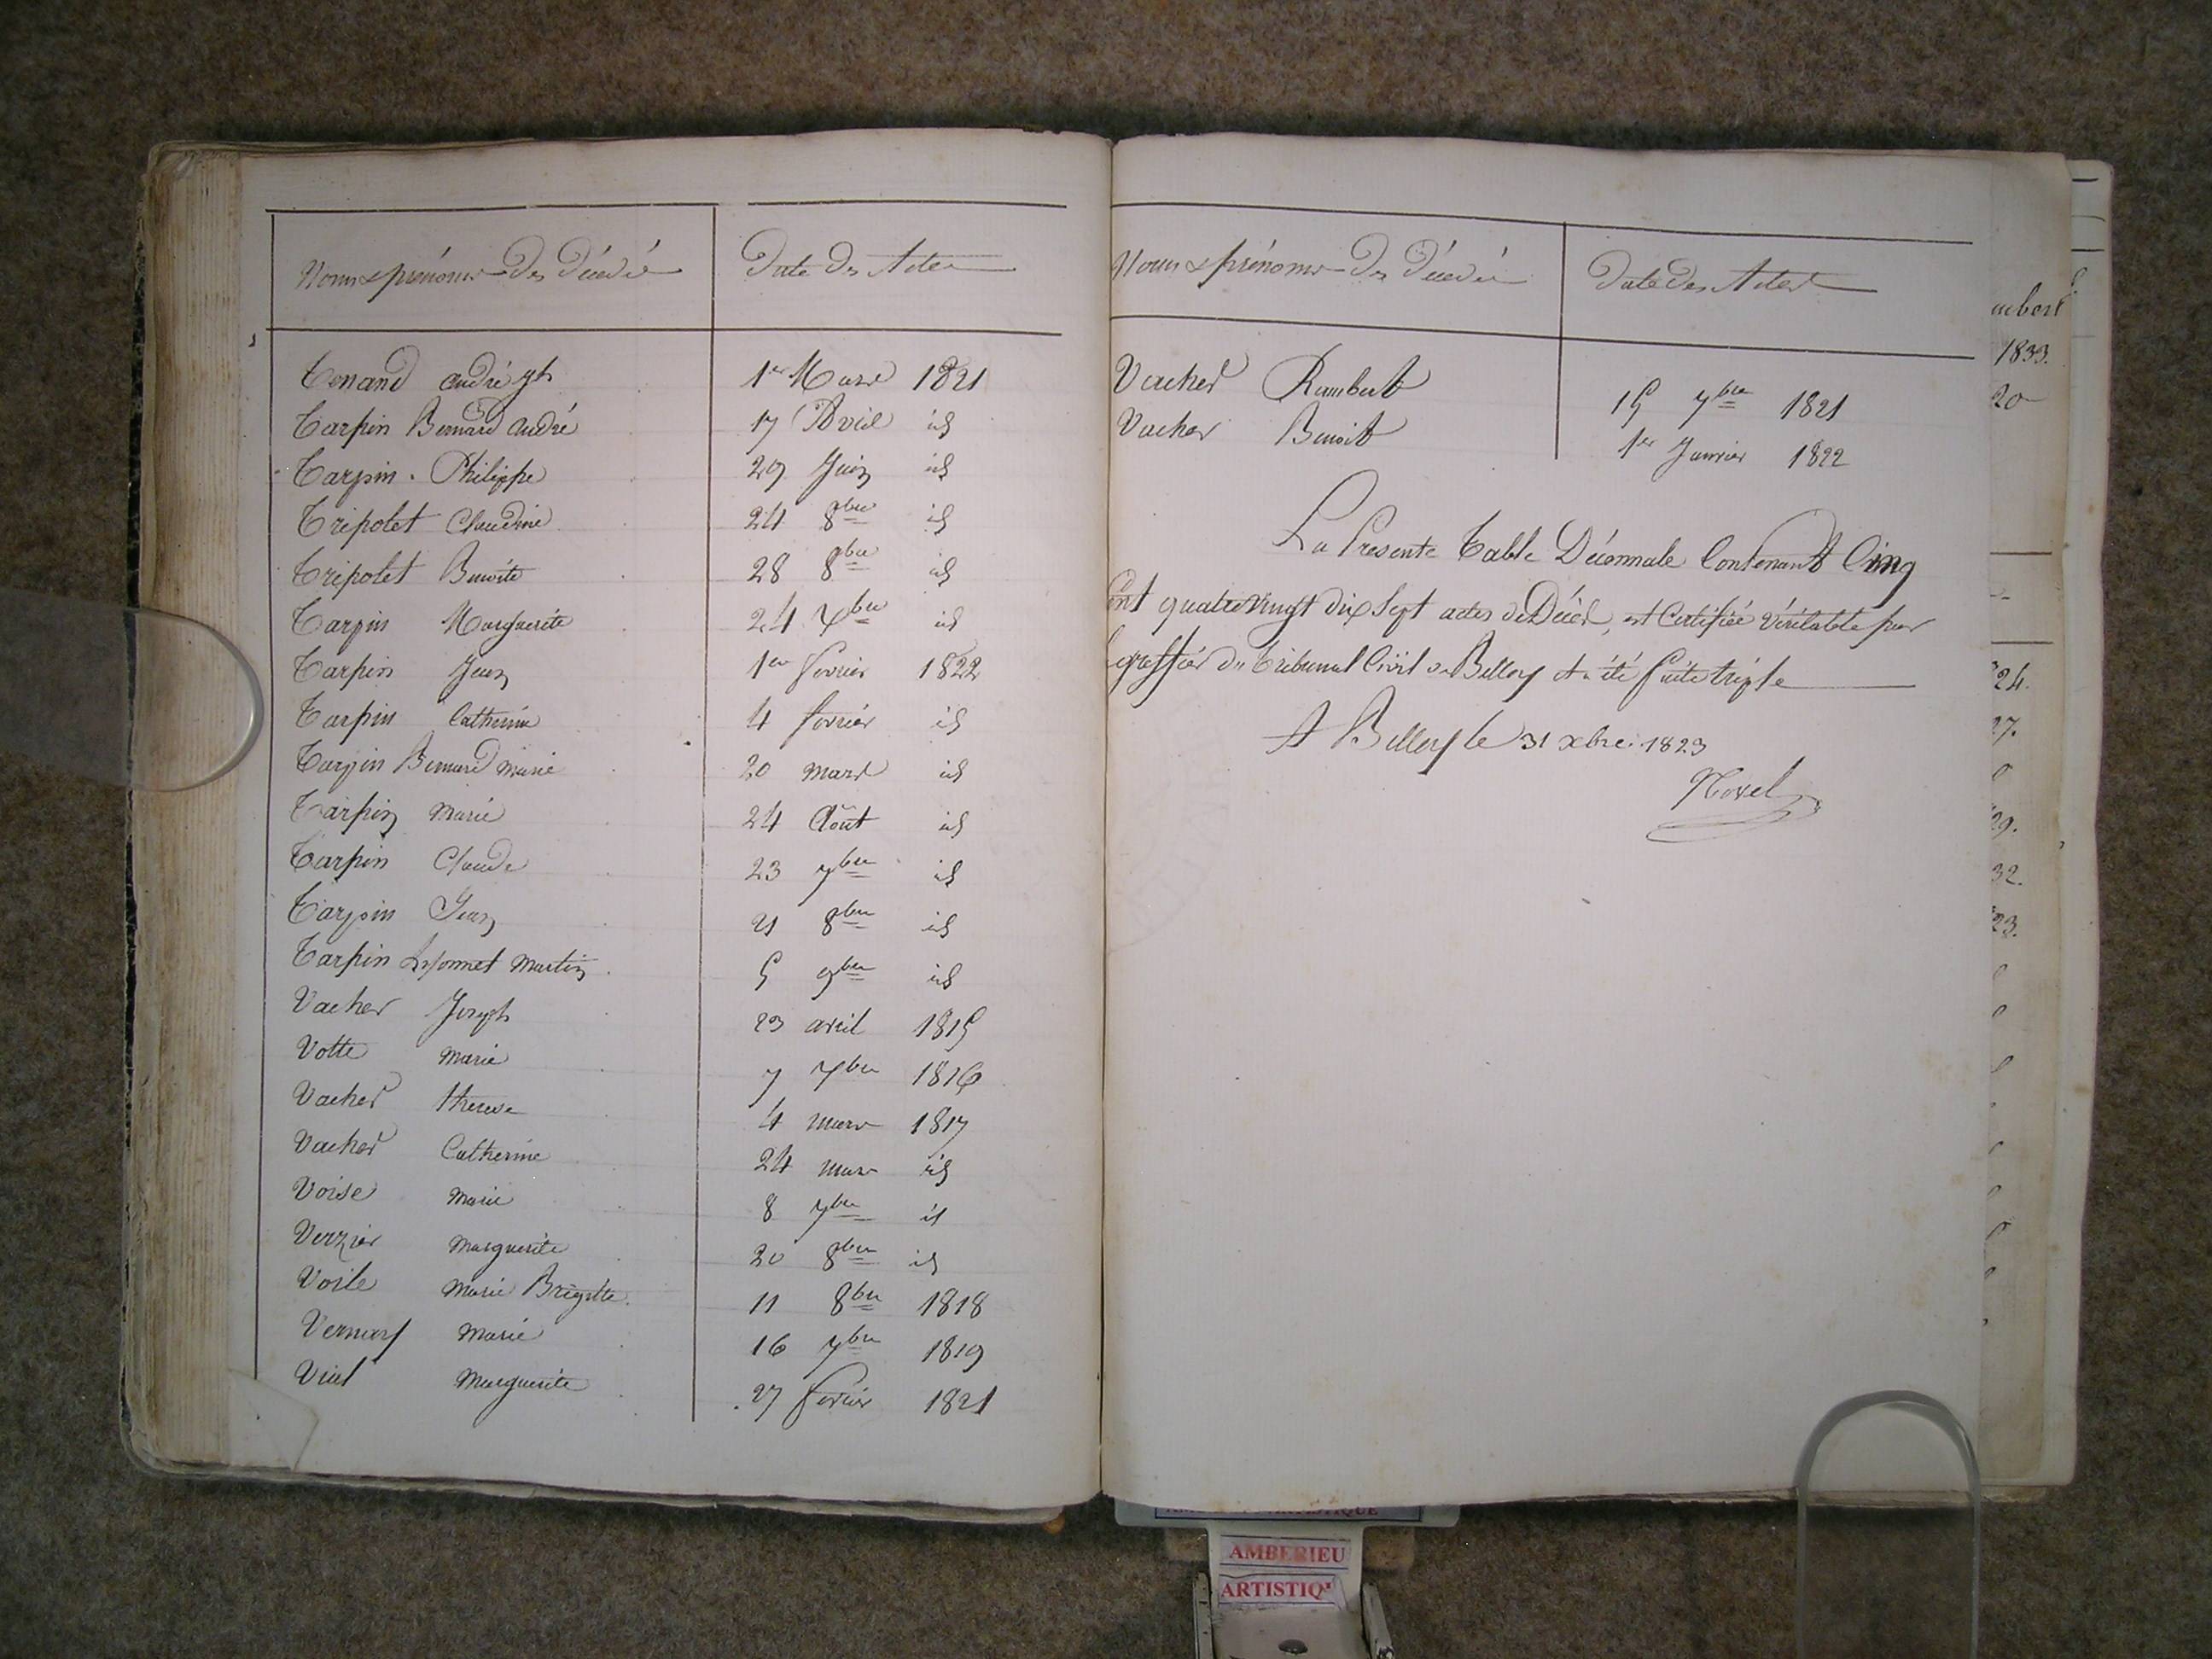 Noms & prénoms des Décédés Date des Actes
Tenand andré jh 1er Mars 1821
Tarpin Bernard André 17 Avril id
Tarpin. Philippe 29 Juin id
Tripolet Claudine 24 8bre id
Tripolet Benoite 28 8bre id
Tarpin Marguerite 24 Xbre id
Tarpin Jean 1er fevrier 1822
Tarpin Catherine 4 fevrier id
Tarpin Bernard Marie 20 mars id
Tarpin Marie 24 Août id
Tarpin Claude 23 7bre id
Tarpin Jean 21 8bre id
Tarpin Martin 5 9bre id
Vacher Joseph 23 avril 1815
Votte Marie 7 Xbre 1816
Vacher therese 4 mars 1817
Vacher Catherine 24 mars id
Voise Marie 8 7bre id
Verzier Marguerite 20 8bre id
Voile Marie Brigitte 11 8bre 1818
Vernay Marie 16 7bre 1819
Vial Marguerite 27 fevrier 1821
Noms & prénoms des Décédés Date des Actes
Vacher Rambert 15 7bre 1821
Vacher Benoit 1er Janvier 1822
La Presente Table Décennale Contenant Cinq
Cent quatre vingt dix Sept actes de Décès, est Certifiée Véritable par
le greffier du Tribunal Civil de Belley et a été faite triple
A Belley le 31 xbre 1823
Novel
1833.
20
24.
27.
29.
32.
23.
AMBERIEU
ARTISTIQ